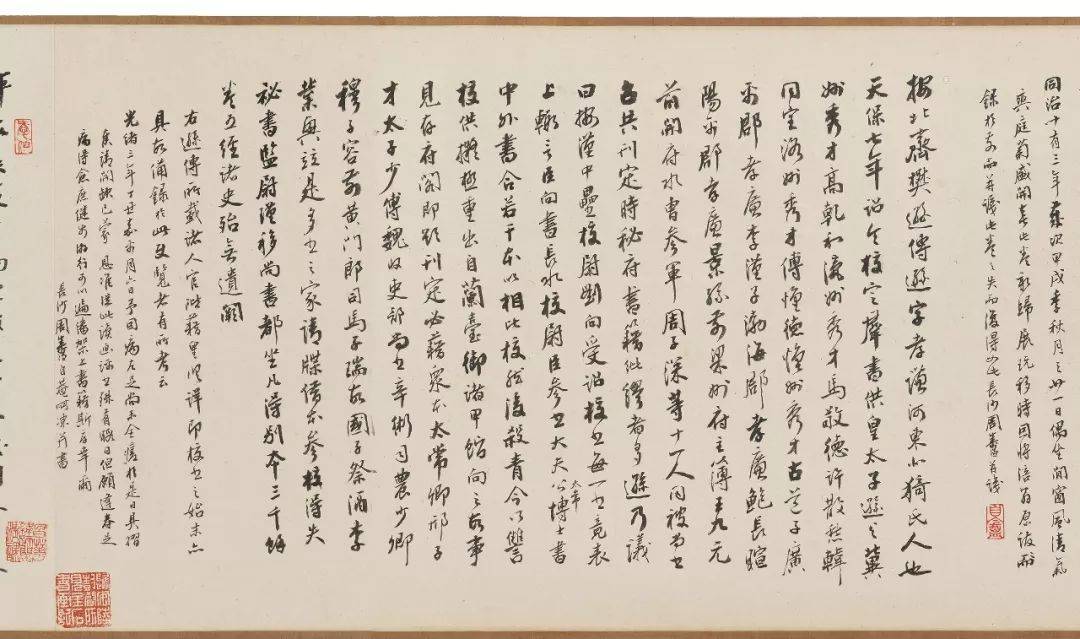 同治十有三年歲次甲戌季秋月之廿一日偶坐閒窗風清氣
爽庭菊盛開喜此卷新歸展玩移時因將涪翁原
錄於前而并識此卷之失而復得長沙周壽昌識
按北齊樊遜傳遜字孝謙河東北猗氏人也
天保七年詔令校定群書供皇太子遜與冀
州秀才高乾和瀛州秀才馬敬德許散愁韓
同寶洛州秀才傅懷德懷州秀才古道子廣
平郡孝廉李漢子渤海郡孝廉鮑長暄
陽平郡孝廉景孫前梁州府主簿王九元
前開府水曹參軍周子深等十一人同被尚書
召共刊定時秘府書籍紕繆者多遜乃議
曰按漢中壘校尉劉向受詔校書每一書竟表
上輒言臣向書長水校尉臣參書大夫公太常博士書
中外書合若干本以相比校然後殺青今所讎
校供擬極重出自蘭臺御諸甲館向之故事
見存府閣即欲刊定必藉眾本太常卿邢子
才太子少傅魏收吏部尚書辛術司農少卿
穆子容前黃門郎司馬子瑞故國子祭酒李
業興並是多書之家請牒借本參校得失
秘書監尉瑾移尚書都坐凡得別本三千餘
卷五經諸史殆無遺闕
右遜傳所載諸人官階籍里詳即校書之始末亦
具故備錄於此覽者有所考云
光緒三年丁丑嘉平月六日予因病左足尚未全愈於是日具摺
奏請開缺已蒙恩准從此讀畫殊有暇日但願遠春之
病得
長沙周壽昌自菴呵凍并書